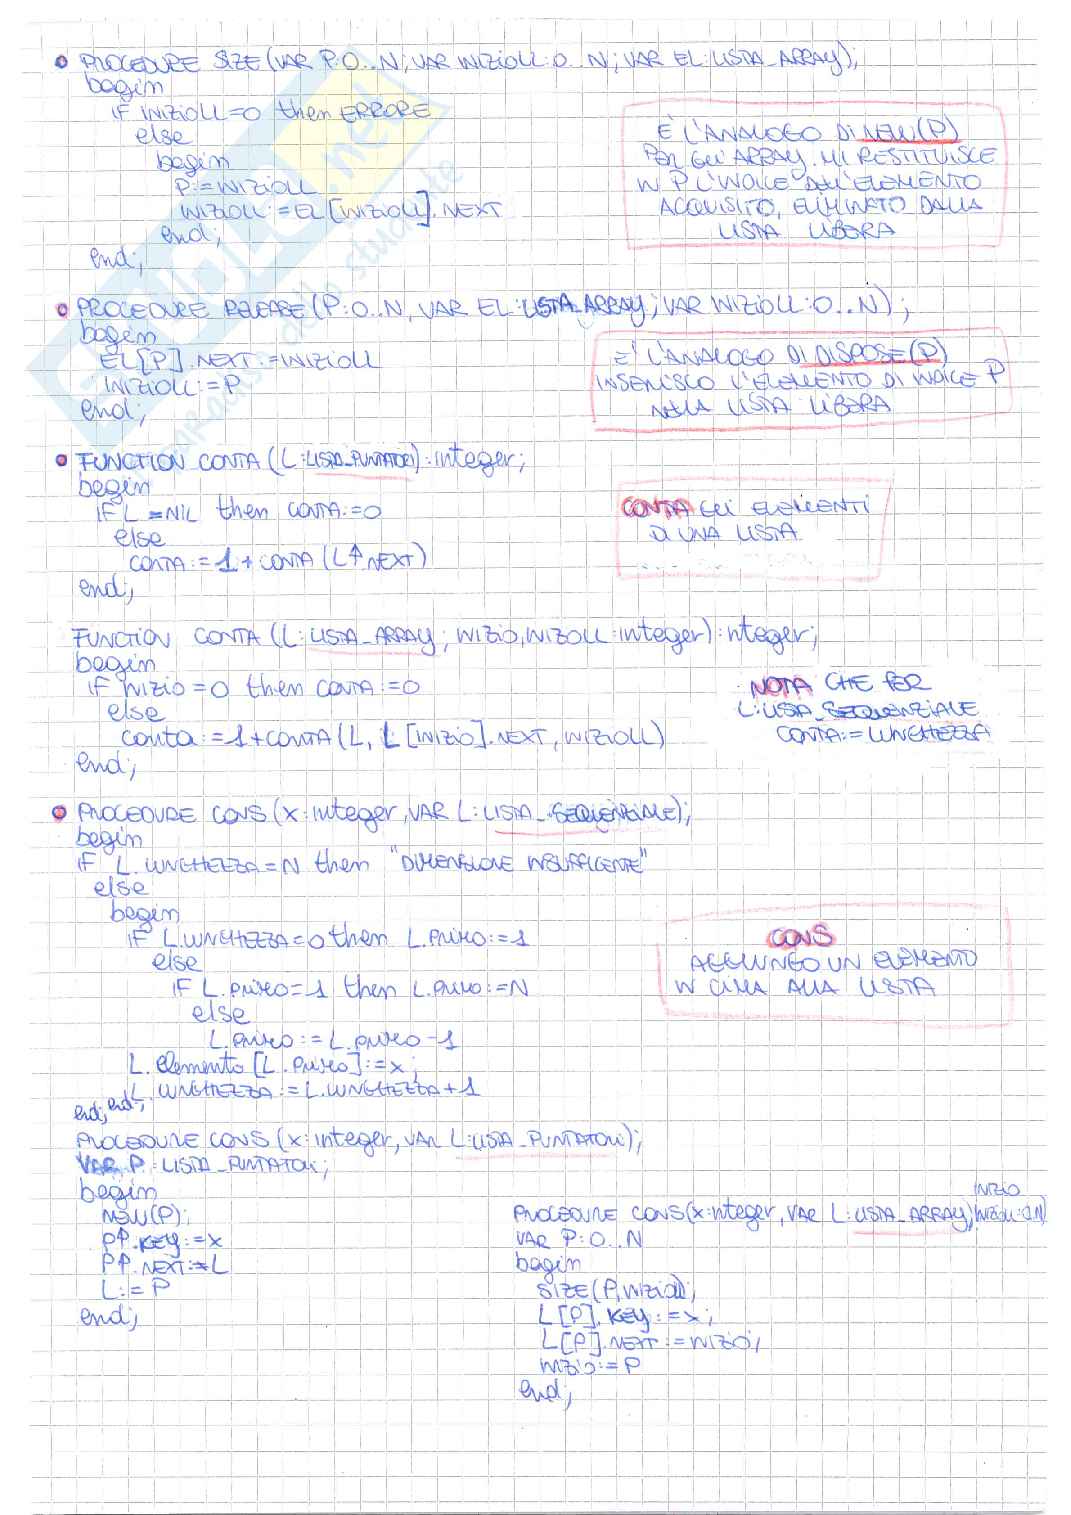 PROCEDURE SIZE (VAR P:0..N; VAR INIZIOLL:0..N; VAR EL:LISTA_ARRAY);
begin
IF INIZIOLL=0 then ERRORE
else
begin
P:=INIZIOLL
INIZIOLL:=EL[INIZIOLL].NEXT
end;
end;
È L'ANALOGO DI NEW(P)
PER GLI ARRAY. MI RESTITUISCE
IN P L'INDICE DELL'ELEMENTO
ACQUISITO, ELIMINATO DALLA
LISTA LIBERA
PROCEDURE RELEASE (P:0..N, VAR EL:LISTA_ARRAY; VAR INIZIOLL:0..N);
begin
EL[P].NEXT:=INIZIOLL
INIZIOLL:=P
end;
E' L'ANALOGO DI DISPOSE(P)
INSERISCO L'ELEMENTO DI INDICE P
NELLA LISTA LIBERA
FUNCTION CONTA (L:LISTA_PUNTATORI):integer;
begin
IF L=NIL then CONTA:=0
else
CONTA:=1+CONTA (L↑.NEXT)
end;
CONTA GLI ELEMENTI
DI UNA LISTA
FUNCTION CONTA (L:LISTA_ARRAY; INIZIO,INIZOLL:integer):integer;
begin
IF INIZIO=0 then CONTA:=0
else
conta:=1+CONTA(L, L[INIZIO].NEXT, INIZIOLL)
end;
NOTA CHE PER
L:LISTA_SEQUENZIALE
CONTA:=LUNGHEZZA
PROCEDURE CONS (x:integer, VAR L:LISTA_SEQUENZIALE);
begin
IF L.LUNGHEZZA=N then "DIMENSIONE INSUFFICENTE"
else
begin
IF L.LUNGHEZZA=0 then L.PRIMO:=1
else
IF L.PRIMO=1 then L.PRIMO:=N
else
L.PRIMO:=L.PRIMO-1
L.elemento[L.PRIMO]:=x;
L.LUNGHEZZA:=L.LUNGHEZZA+1
end; end;
CONS
AGGIUNGO UN ELEMENTO
IN CIMA ALLA LISTA
PROCEDURE CONS (x:integer, VAR L:LISTA_PUNTATORI);
VAR P:LISTA_PUNTATORI;
begin
NEW(P);
P↑.KEY:=x
P↑.NEXT:=L
L:=P
end;
INIZIO
PROCEDURE CONS(x:integer, VAR L:LISTA_ARRAY,
VAR P:0..N
begin
SIZE(P,INIZIOLL);
L[P].KEY:=x;
L[P].NEXT:=INIZIO;
INIZIO:=P
end;